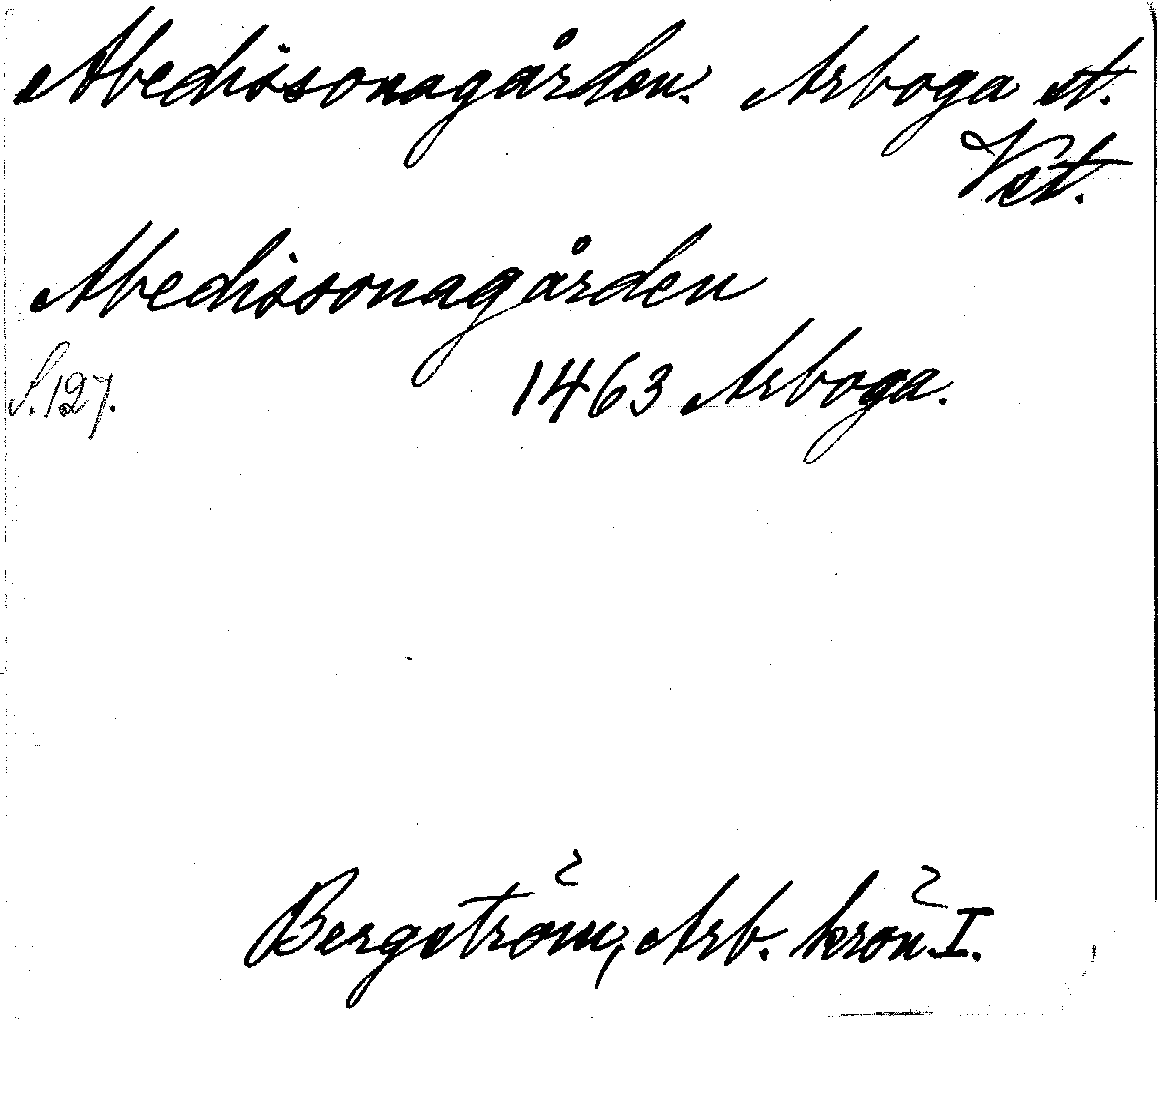 Abedissonagården. Arboga st.
Vst.
Abedissonagården
S. 127. 1463 Arboga.
Bergström, Arb. krön. I.